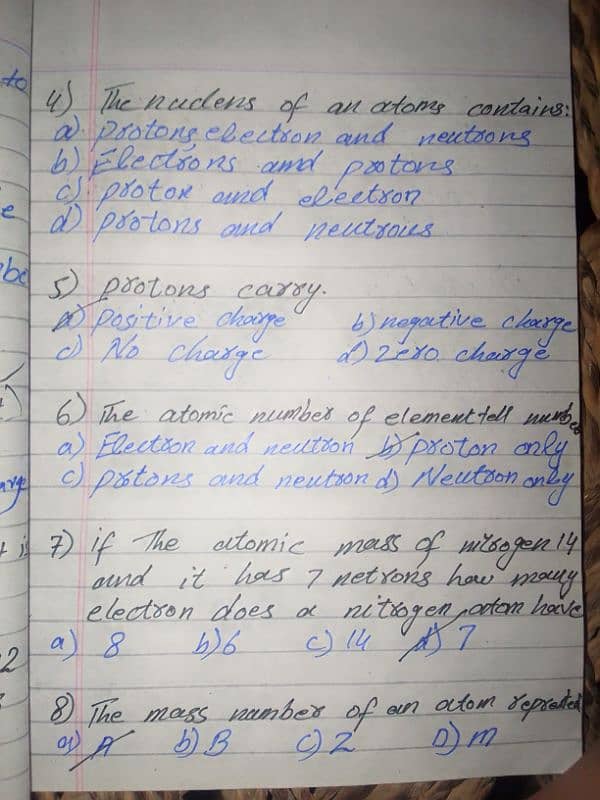 to
4) The nucleus of an atoms contains:
a) protons, electron and neutrons
b) Electrons and protons
c) proton and electron
d) protons and neutrons
be
5) protons carry.
a) positive charge b) negative charge
c) No charge d) zero charge
6) The atomic number of element tell number
a) Electron and neutron b) proton only
c) protons and neutron d) Neutron only
7) if The atomic mass of nitrogen 14
and it has 7 netrons how many
electron does a nitrogen atom have
a) 8 b) 6 c) 14 d) 7
2
8) The mass number of an atom
a) A b) B c) Z D) m